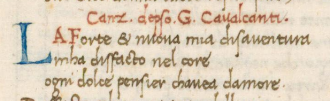 Canz. depso. G. Caualcanti.
LA Forte & nuoua mia disauentura
mha disfacto nel core
ogni dolce pensier chauea damore.